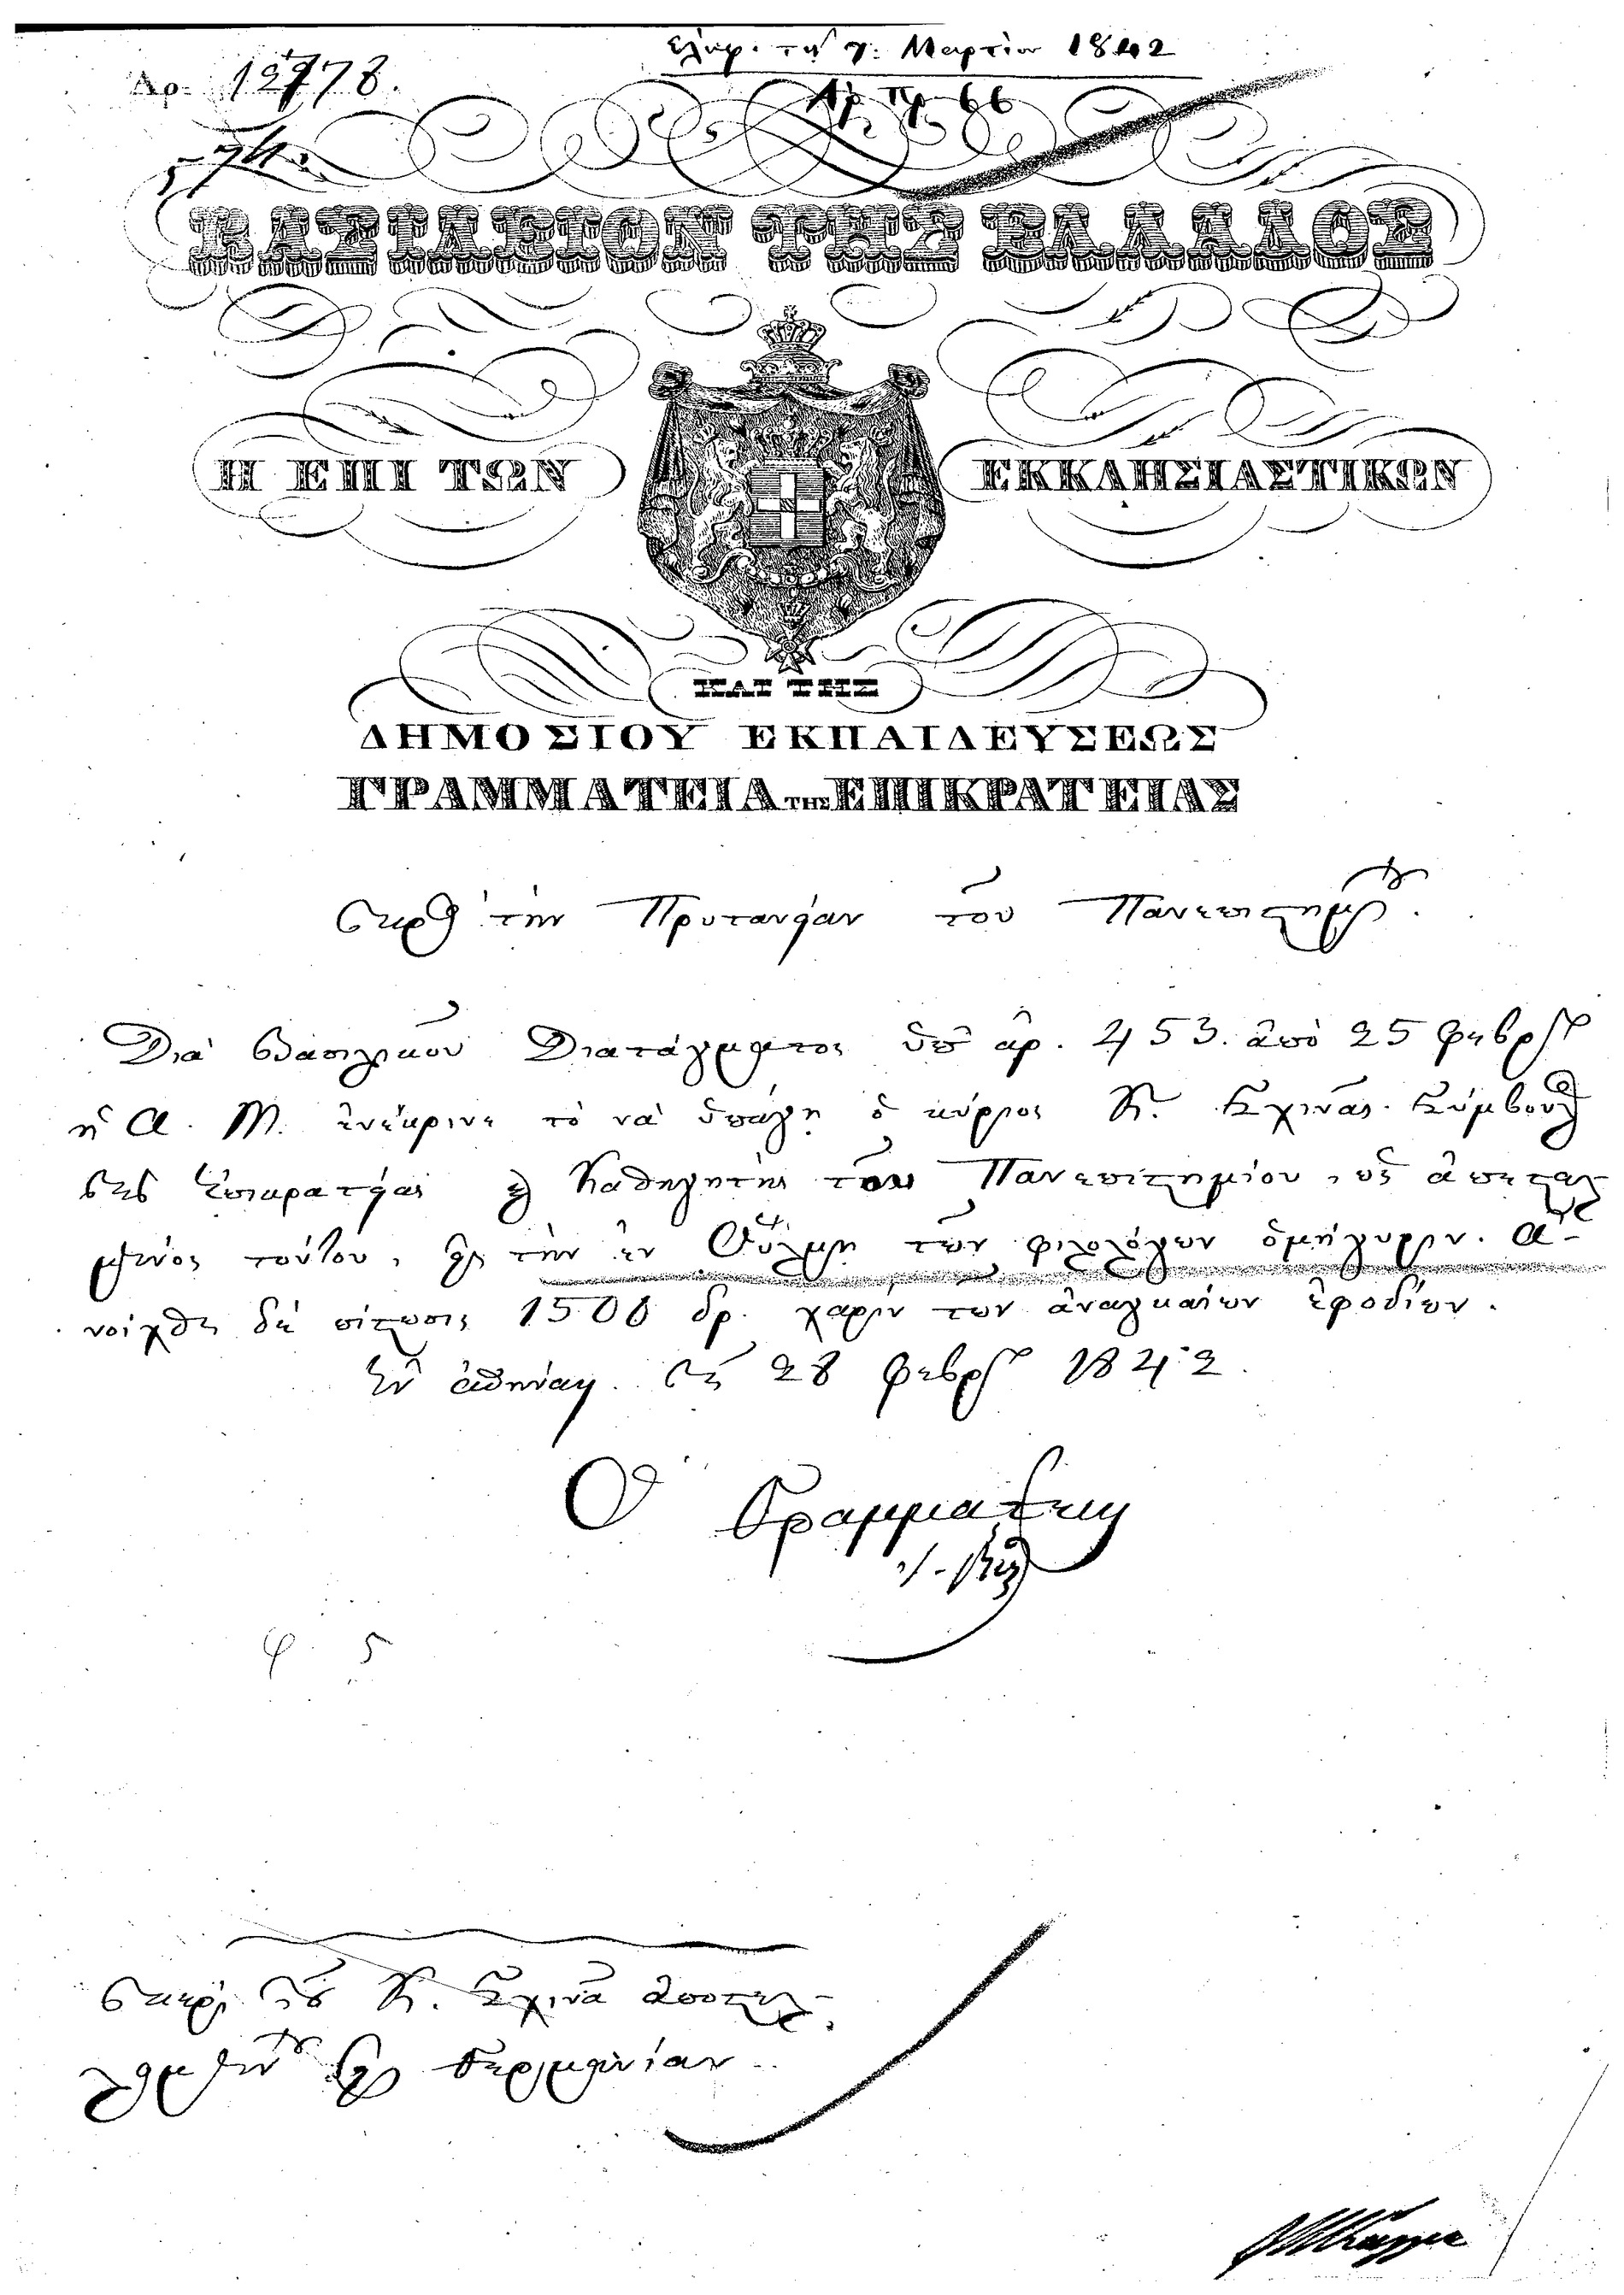 ἐλήφ. τῇ 7: Μαρτίου 1842
Ἀρ. Πρ. 66
Αρ. 12778.
ΒΑΣΙΛΕΙΟΝ ΤΗΣ ΕΛΛΑΔΟΣ
Η ΕΠΙ ΤΩΝ ΕΚΚΛΗΣΙΑΣΤΙΚΩΝ
ΚΑΙ ΤΗΣ
ΔΗΜΟΣΙΟΥ ΕΚΠΑΙΔΕΥΣΕΩΣ
ΓΡΑΜΜΑΤΕΙΑ ΤΗΣ ΕΠΙΚΡΑΤΕΙΑΣ
πρὸς τὴν Πρυτανείαν τοῦ Πανεπιστημίου.
Διὰ βασιλικοῦ Διατάγματος ὑπ' ἀρ. 453. ἀπὸ 25 φεβρ
ἡ Α. Μ. ἐνέκρινε τὸ νὰ ὑπάγῃ ὁ κύριος Κ. Σχινᾶς Σύμβουλος
τῆς Ἐπικρατείας καὶ Καθηγητὴς τοῦ Πανεπιστημίου, ὡς ἀπεσταλ
μένος τούτου, εἰς τὴν ἐν Οὔλμῃ τῶν φιλολόγων ὁμήγυριν. Ἀ-
νοίχθη δὲ πίστωσις 1500 δρ. χάριν τῶν ἀναγκαίων ἐφοδίων.
Ἐν Ἀθήναις. τῇ 28 φεβρ 1842.
Ὁ Γραμματεὺς
φ. 5
περὶ τοῦ Κ. Σχινᾶ ἀποστελ-
λομένου εἰς Γερμανίαν